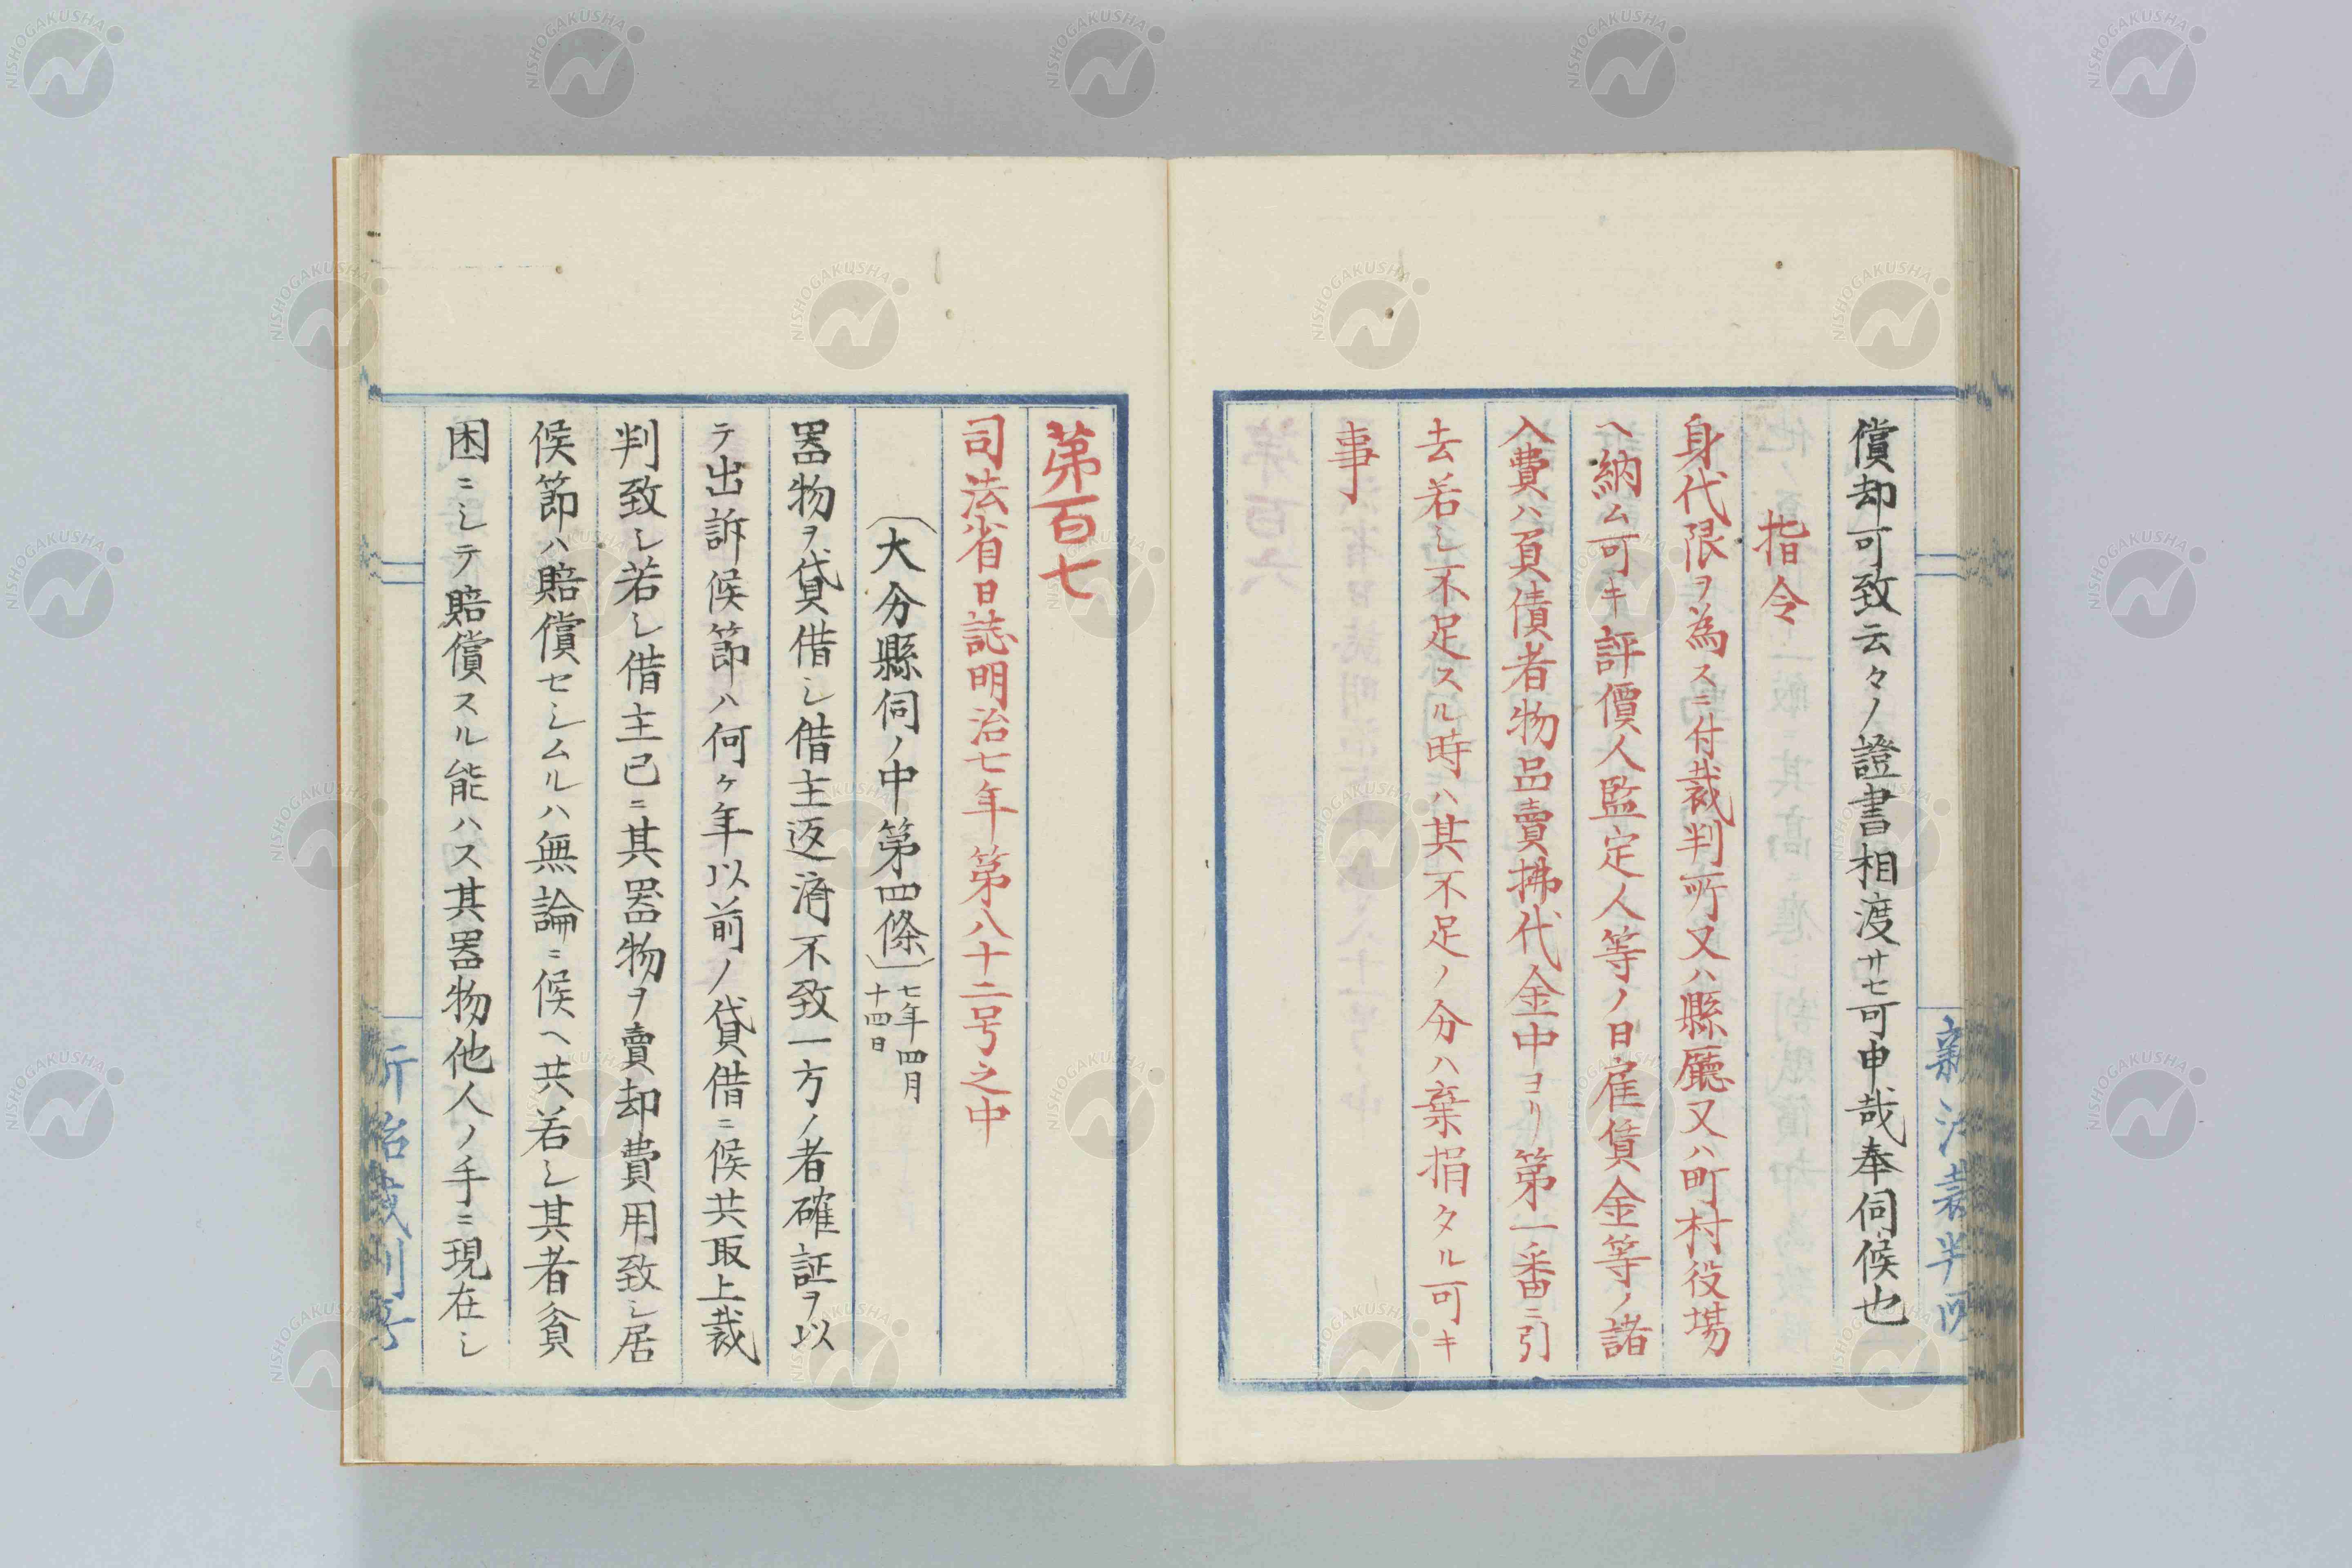 償却可致云々ノ證書相渡サセ可申哉奉伺候也
指令
身代限ヲ為スニ付裁判所又ハ縣廳又ハ町村役場
ヘ納ム可キ評價人監定人等ノ日雇賃金等ノ諸
入費ハ負債者物品賣拂代金中ヨリ第一番ニ引
去若シ不足スル時ハ其不足ノ分ハ棄捐タル可キ
事
第百七
司法省日誌明治七年第八十二号之中
(大分縣伺ノ中第四條)七年四月
十四日
器物ヲ貸借シ借主返済不致一方ノ者確証ヲ以
テ出訴候節ハ何ヶ年以前ノ貸借ニ候共取上裁
判致シ若シ借主已ニ其器物ヲ賣却費用致シ居
候節ハ賠償セシムルハ無論ニ候ヘ共若シ其者貧
困ニシテ賠償スル能ハス其器物他人ノ手ニ現在シ
NISHOGAKUSHA